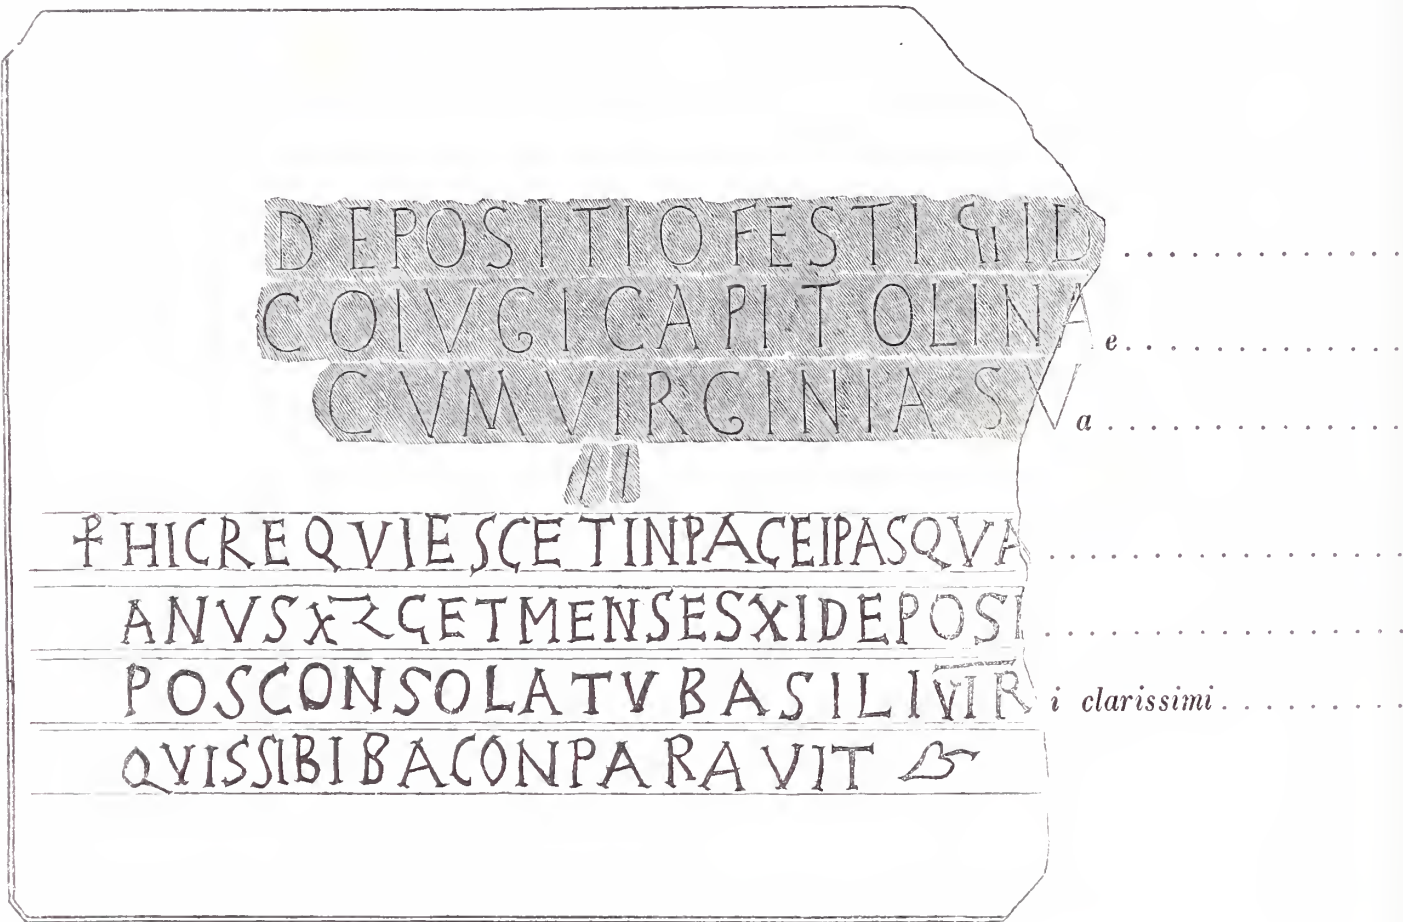 DEPOSITIO FESTI ID
COIVGI CAPITOLINAe
CVM VIRGINIA SVa
II
HIC REQVIESCET IN PACE IPASQVA
ANVS ET MENSES XI DEPOSI
POSCONSOLATV BASILI VIRi clarissimi
QVIS SIBI BA CONPARAVIT